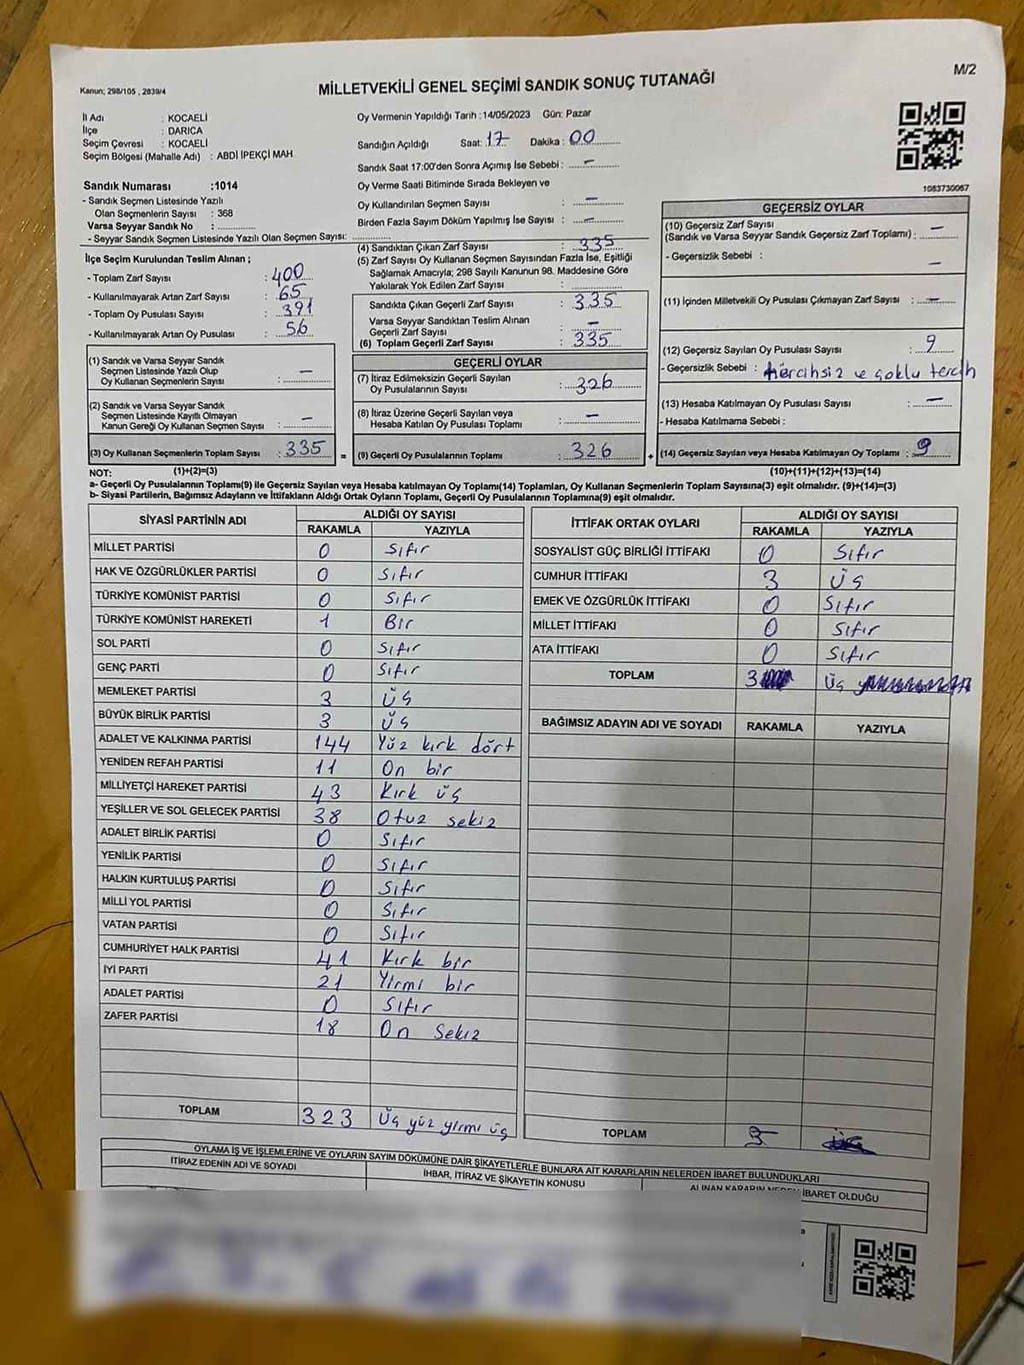 Kanun; 298/105 , 2839/4
M/2
MİLLETVEKİLİ GENEL SEÇİMİ SANDIK SONUÇ TUTANAĞI
İl Adı : KOCAELİ
İlçe : DARICA
Seçim Çevresi : KOCAELİ
Seçim Bölgesi (Mahalle Adı) : ABDİ İPEKÇİ MAH.
Oy Vermenin Yapıldığı Tarih :14/05/2023 Gün: Pazar
Sandığın Açıldığı Saat: 17 Dakika: 00
Sandık Saat 17:00'den Sonra Açımış İse Sebebi : –
Oy Verme Saati Bitiminde Sırada Bekleyen ve
Oy Kullandırılan Seçmen Sayısı –
Birden Fazla Sayım Döküm Yapılmış İse Sayısı : –
1083730067
Sandık Numarası :1014
- Sandık Seçmen Listesinde Yazılı
Olan Seçmenlerin Sayısı : 368
Varsa Seyyar Sandık No :
- Seyyar Sandık Seçmen Listesinde Yazılı Olan Seçmen Sayısı:
İlçe Seçim Kurulundan Teslim Alınan ;
- Toplam Zarf Sayısı : 400
- Kullanılmayarak Artan Zarf Sayısı : 65
- Toplam Oy Pusulası Sayısı : 391
- Kullanılmayarak Artan Oy Pusulası : 56
(1) Sandık ve Varsa Seyyar Sandık
Seçmen Listesinde Yazılı Olup
Oy Kullanan Seçmenlerin Sayısı : –
(2) Sandık ve Varsa Seyyar Sandık
Seçmen Listesinde Kayıtlı Olmayan
Kanun Gereği Oy Kullanan Seçmen Sayısı : –
(3) Oy Kullanan Seçmenlerin Toplam Sayısı : 335
(4) Sandıktan Çıkan Zarf Sayısı : 335
(5) Zarf Sayısı Oy Kullanan Seçmen Sayısından Fazla İse, Eşitliği
Sağlamak Amacıyla; 298 Sayılı Kanunun 98. Maddesine Göre
Yakılarak Yok Edilen Zarf Sayısı :
Sandıkta Çıkan Geçerli Zarf Sayısı : 335
Varsa Seyyar Sandıktan Teslim Alınan
Geçerli Zarf Sayısı : –
(6) Toplam Geçerli Zarf Sayısı : 335
GEÇERLİ OYLAR
(7) İtiraz Edilmeksizin Geçerli Sayılan
Oy Pusulalarının Sayısı : 326
(8) İtiraz Üzerine Geçerli Sayılan veya
Hesaba Katılan Oy Pusulası Toplamı : –
= (9) Geçerli Oy Pusulalarının Toplamı : 326
GEÇERSİZ OYLAR
(10) Geçersiz Zarf Sayısı
(Sandık ve Varsa Seyyar Sandık Geçersiz Zarf Toplamı) : –
- Geçersizlik Sebebi : –
(11) İçinden Milletvekili Oy Pusulası Çıkmayan Zarf Sayısı : –
(12) Geçersiz Sayılan Oy Pusulası Sayısı : 9
- Geçersizlik Sebebi : tercihsiz ve çoklu tercih
(13) Hesaba Katılmayan Oy Pusulası Sayısı : –
- Hesaba Katılmama Sebebi :
+ (14) Geçersiz Sayılan veya Hesaba Katılmayan Oy Toplamı : 9
NOT: (1)+(2)=(3) (10)+(11)+(12)+(13)=(14)
a- Geçerli Oy Pusulalarının Toplamı(9) ile Geçersiz Sayılan veya Hesaba katılmayan Oy Toplamı(14) Toplamları, Oy Kullanan Seçmenlerin Toplam Sayısına(3) eşit olmalıdır. (9)+(14)=(3)
b- Siyasi Partilerin, Bağımsız Adayların ve İttifakların Aldığı Ortak Oyların Toplamı, Geçerli Oy Pusulalarının Toplamına(9) eşit olmalıdır.
SİYASİ PARTİNİN ADI ALDIĞI OY SAYISI
RAKAMLA YAZIYLA
MİLLET PARTİSİ 0 Sıfır
HAK VE ÖZGÜRLÜKLER PARTİSİ 0 Sıfır
TÜRKİYE KOMÜNİST PARTİSİ 0 Sıfır
TÜRKİYE KOMÜNİST HAREKETİ 1 Bir
SOL PARTİ 0 Sıfır
GENÇ PARTİ 0 Sıfır
MEMLEKET PARTİSİ 3 Üç
BÜYÜK BİRLİK PARTİSİ 3 Üç
ADALET VE KALKINMA PARTİSİ 144 Yüz kırk dört
YENİDEN REFAH PARTİSİ 11 On bir
MİLLİYETÇİ HAREKET PARTİSİ 43 Kırk üç
YEŞİLLER VE SOL GELECEK PARTİSİ 38 Otuz sekiz
ADALET BİRLİK PARTİSİ 0 Sıfır
YENİLİK PARTİSİ 0 Sıfır
HALKIN KURTULUŞ PARTİSİ 0 Sıfır
MİLLİ YOL PARTİSİ 0 Sıfır
VATAN PARTİSİ 0 Sıfır
CUMHURİYET HALK PARTİSİ 41 Kırk bir
İYİ PARTİ 21 Yirmi bir
ADALET PARTİSİ 0 Sıfır
ZAFER PARTİSİ 18 On Sekiz
TOPLAM 323 Üç yüz yirmi üç
İTTİFAK ORTAK OYLARI ALDIĞI OY SAYISI
RAKAMLA YAZIYLA
SOSYALİST GÜÇ BİRLİĞİ İTTİFAKI 0 Sıfır
CUMHUR İTTİFAKI 3 Üç
EMEK VE ÖZGÜRLÜK İTTİFAKI 0 Sıfır
MİLLET İTTİFAKI 0 Sıfır
ATA İTTİFAKI 0 Sıfır
TOPLAM 3 Üç
BAĞIMSIZ ADAYIN ADI VE SOYADI RAKAMLA YAZIYLA
TOPLAM
OYLAMA İŞ VE İŞLEMLERİNE VE OYLARIN SAYIM DÖKÜMÜNE DAİR ŞİKAYETLERLE BUNLARA AİT KARARLARIN NELERDEN İBARET BULUNDUKLARI
İTİRAZ EDENİN ADI VE SOYADI İHBAR, İTİRAZ VE ŞİKAYETİN KONUSU ALINAN KARARIN NEDEN İBARET OLDUĞU